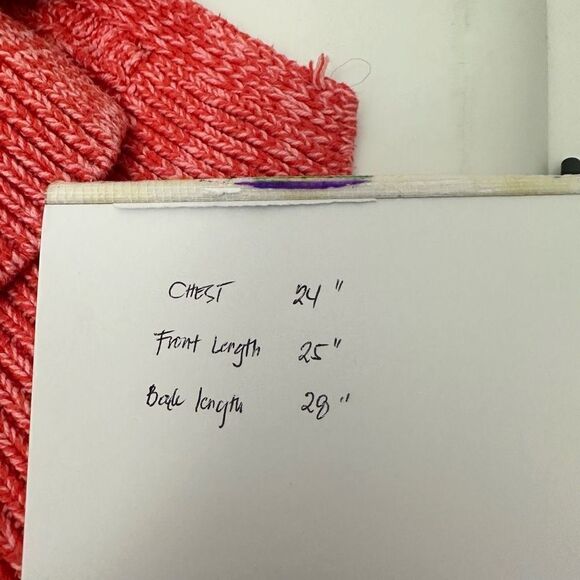 CHEST 24"
Front Length 25"
Back length 28"